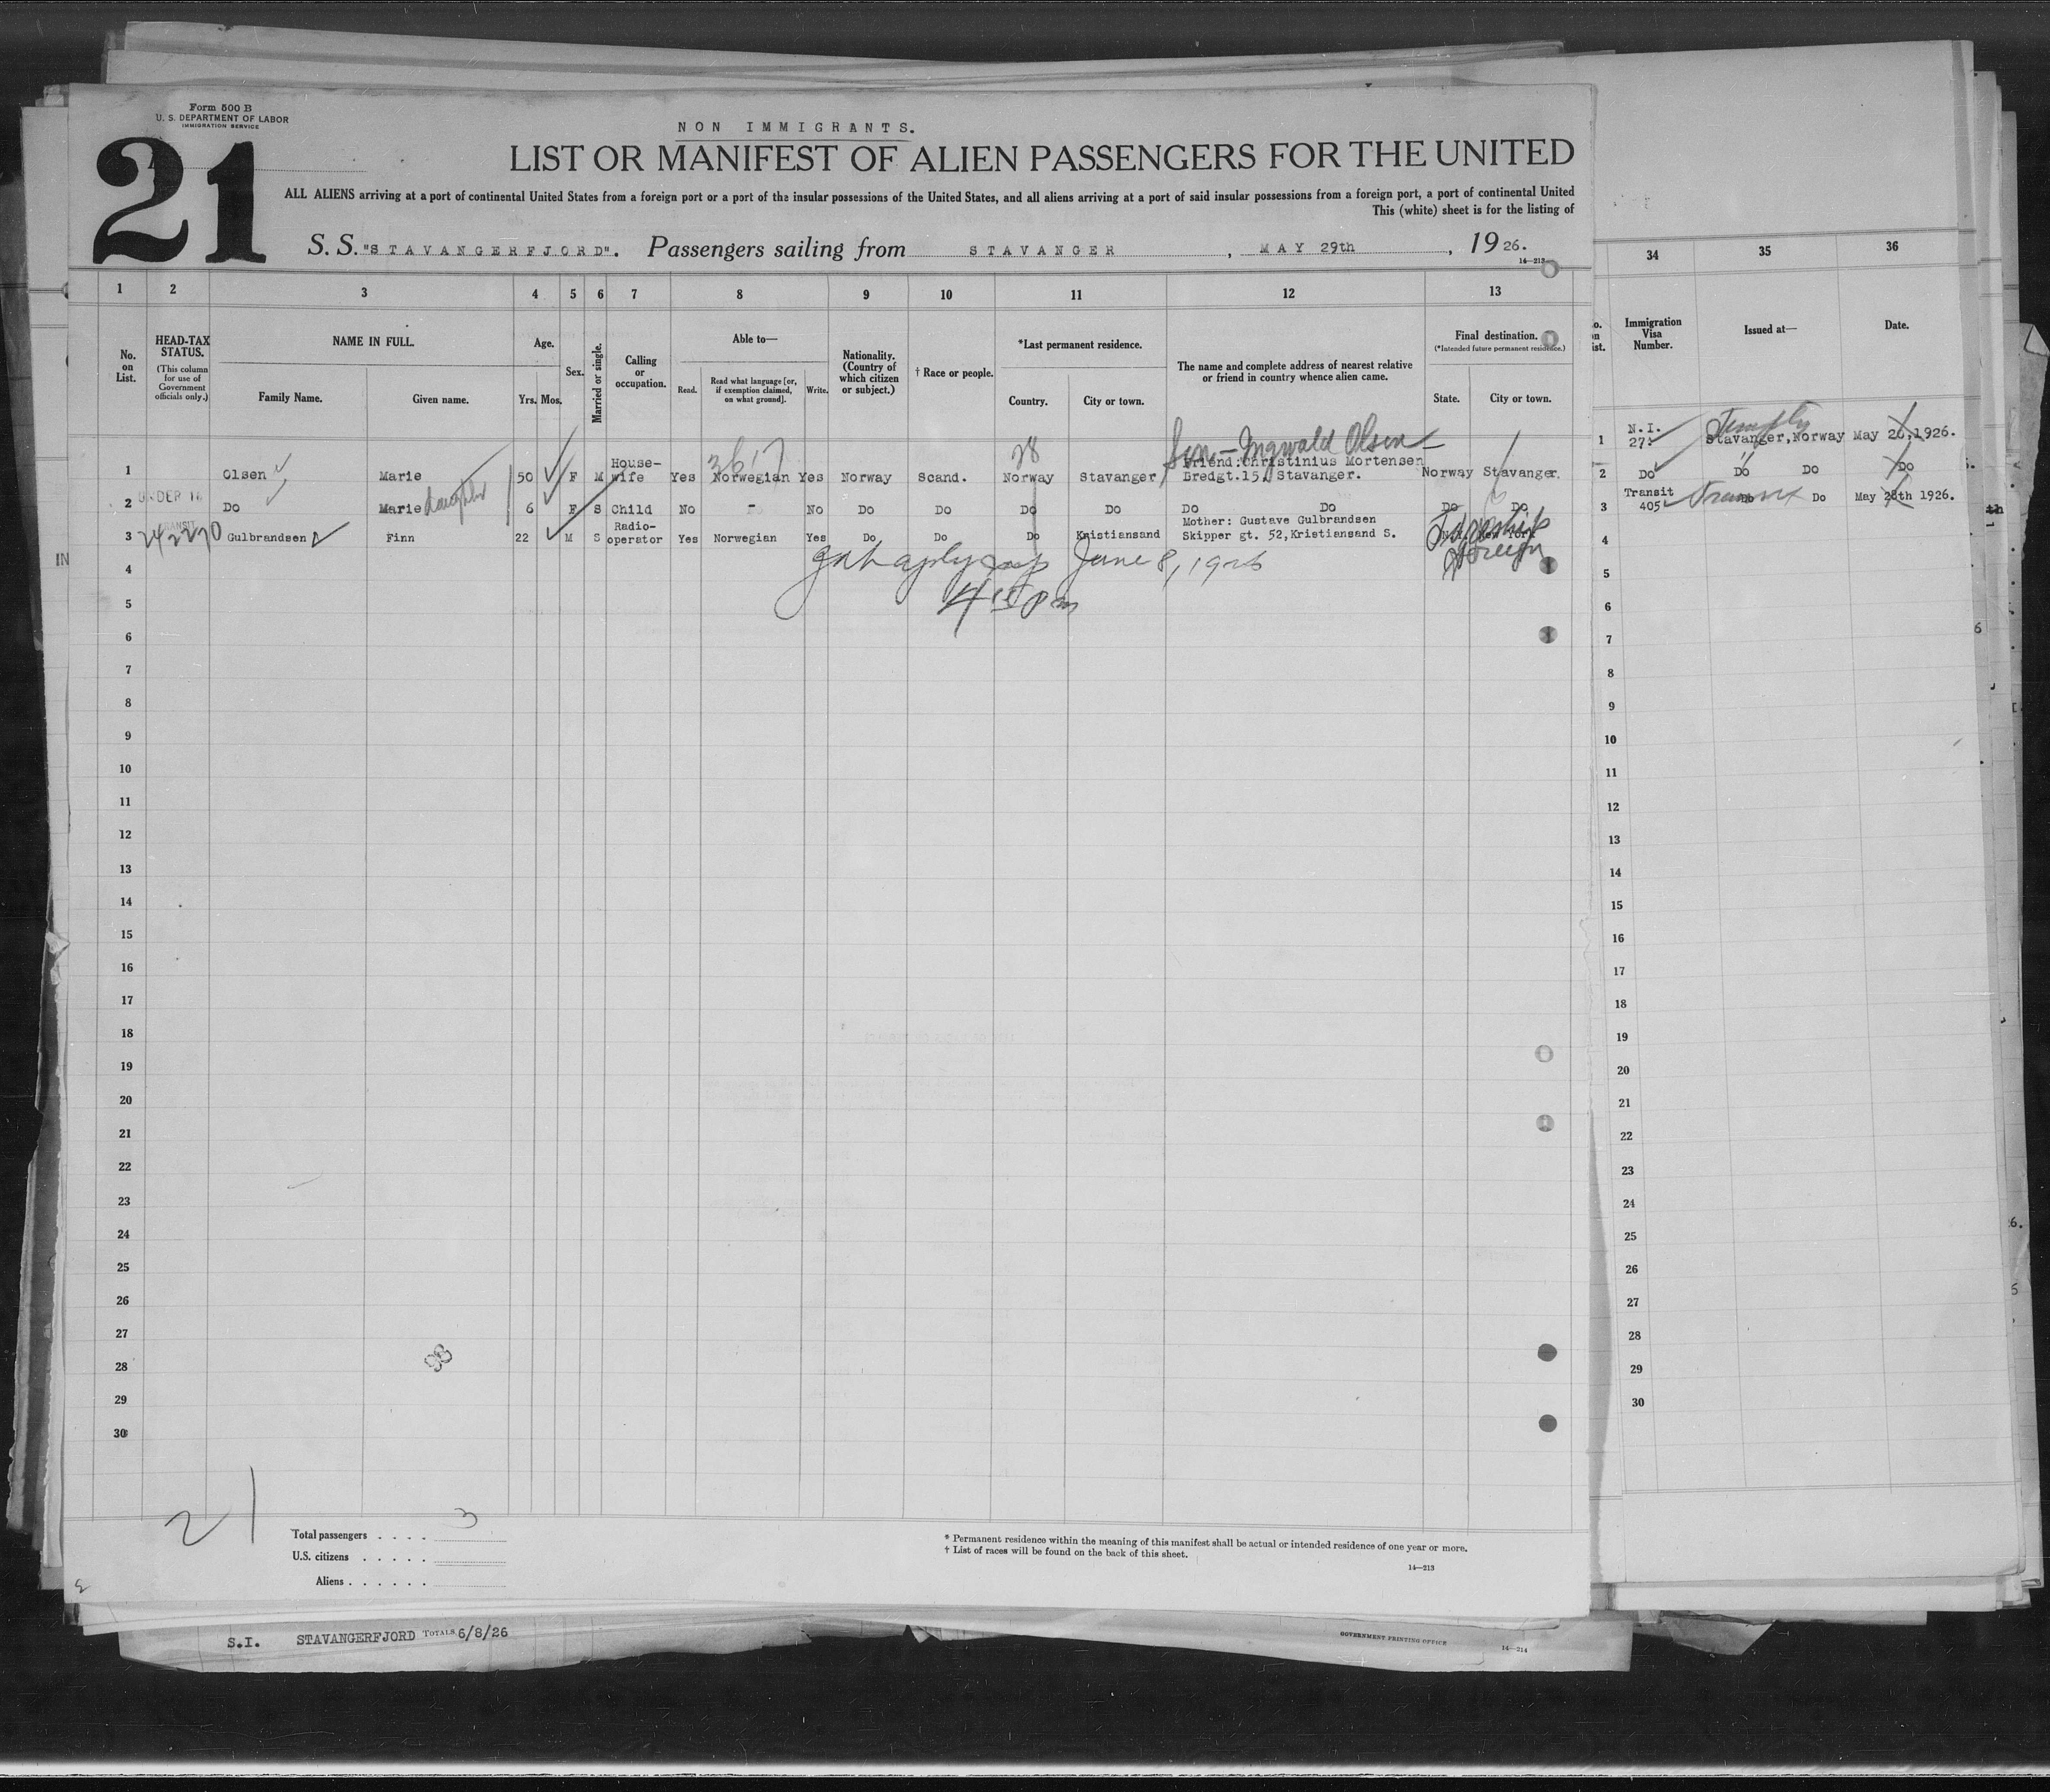 Form 500 B
U. S. DEPARTMENT OF LABOR
IMMIGRATION SERVICE
21
NON IMMIGRANTS.
LIST OR MANIFEST OF ALIEN PASSENGERS FOR THE UNITED
ALL ALIENS arriving at a port of continental United States from a foreign port or a port of the insular possessions of the United States, and all aliens arriving at a port of said insular possessions from a foreign port, a port of continental United
This (white) sheet is for the listing of
S. S. "STAVANGERFJORD". Passengers sailing from STAVANGER, MAY 29th, 1926.
14—213
1 2 3 4 5 6 7 8 9 10 11 12 13
No. on List.
HEAD-TAX STATUS.
(This column for use of Government officials only.)
NAME IN FULL.
Family Name. Given name.
Age.
Yrs. Mos.
Sex.
Married or single.
Calling or occupation.
Able to—
Read. Read what language [or, if exemption claimed, on what ground]. Write.
Nationality. (Country of which citizen or subject.)
† Race or people.
*Last permanent residence.
Country. City or town.
The name and complete address of nearest relative or friend in country whence alien came.
Final destination.
(*Intended future permanent residence.)
State. City or town.
34 35 36
Immigration Visa Number.
Issued at—
Date.
28 Son - Ingwald Olsen
1 Olsen Marie 50 F M House-wife Yes Norwegian Yes Norway Scand. Norway Stavanger Friend: Christinius Mortensen Bredgt.15, Stavanger. Norway Stavanger.
UNDER 16
2 Do Marie daughter 6 F S Child No - No Do Do Do Do Do Do Do Do
TRANSIT
3 Gulbrandsen Finn 22 M S Radio-operator Yes Norwegian Yes Do Do Do Kristiansand Mother: Gustave Gulbrandsen Skipper gt. 52, Kristiansand S. N.Y. New York
foreign
June 8, 1926
4 15 pm
4
5
6
7
8
9
10
11
12
13
14
15
16
17
18
19
20
21
22
23
24
25
26
27
28
29
30
1 N.I. 27 Stavanger, Norway May 26, 1926.
2 Do Do Do Do
3 Transit 405 Transit Do Do May 28th 1926.
4
5
6
7
8
9
10
11
12
13
14
15
16
17
18
19
20
21
22
23
24
25
26
27
28
29
30
21
Total passengers . . . . 3
U.S. citizens . . . . .
Aliens . . . . . .
* Permanent residence within the meaning of this manifest shall be actual or intended residence of one year or more.
† List of races will be found on the back of this sheet.
14—213
S.I. STAVANGERFJORD TOTALS 6/8/26
GOVERNMENT PRINTING OFFICE
14—214